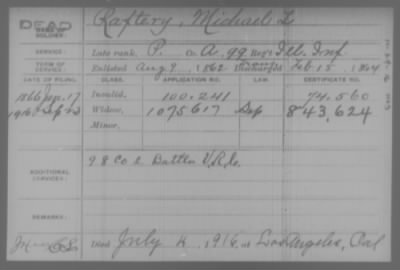 DEAD
NAME OF SOLDIER: Raftery, Michael L
SERVICE: Late rank, P Co. A, 99 Reg't Ill. Inf
TERM OF SERVICE: Enlisted Aug 9, 1862 Discharged Feb. 15, 1864
DATE OF FILING. CLASS. APPLICATION NO. LAW. CERTIFICATE NO.
1866 Jan. 17 Invalid, 100.241 74.560
1916 Widow, 1075617 843,624
Minor,
ADDITIONAL SERVICES: 98 Co 2 Battln V.R.C.
REMARKS:
Died July 4, 1916, at Los Angeles, Cal